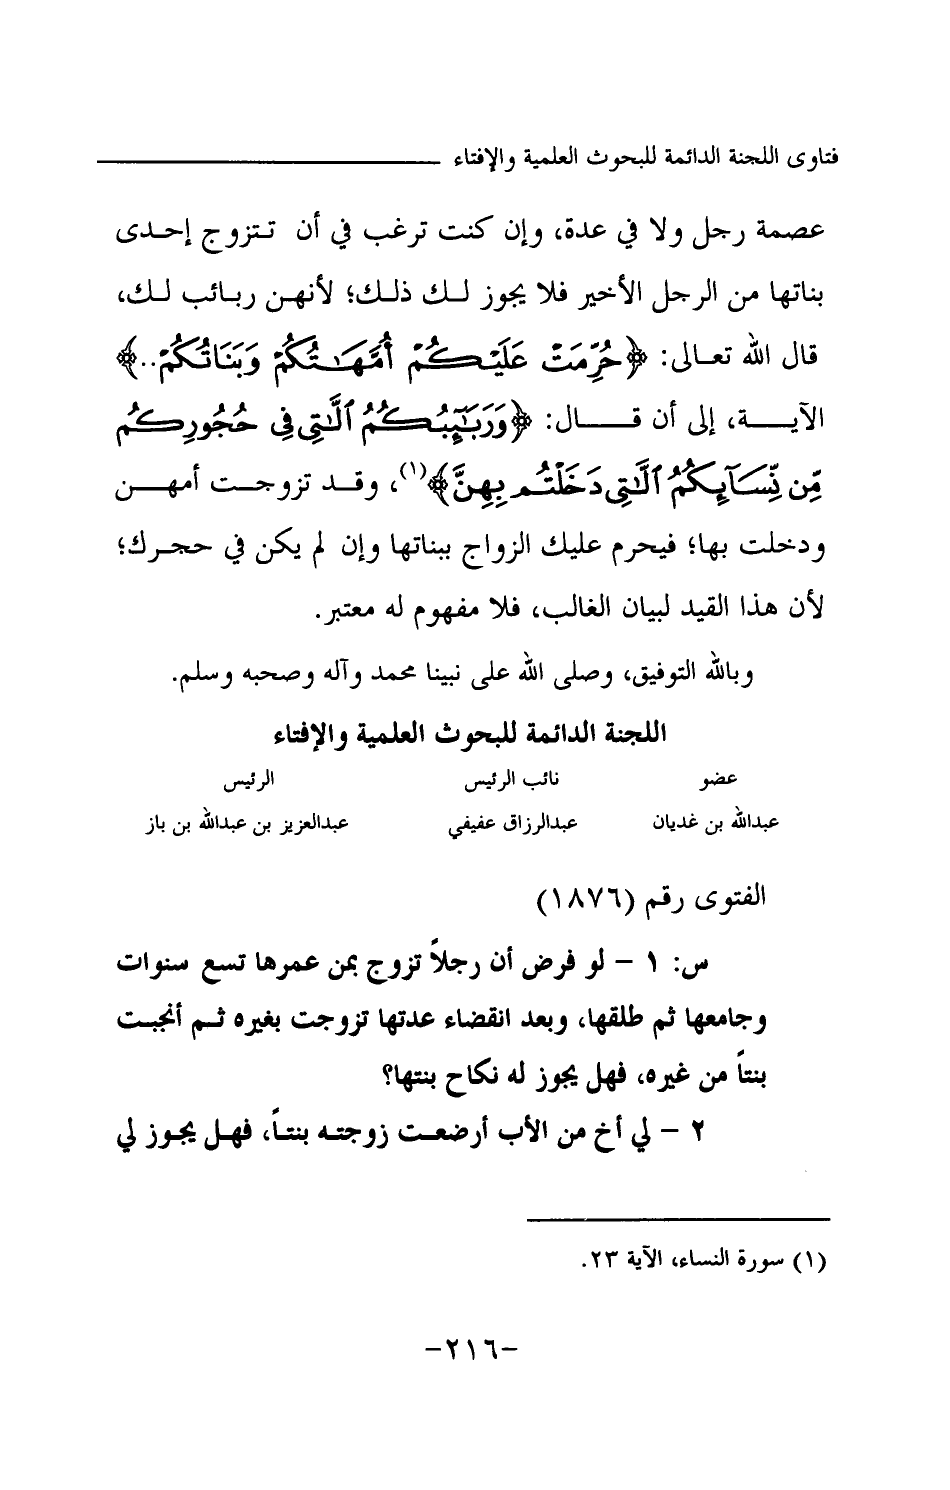 فتاوى اللجنة الدائمة للبحوث العلمية والإفتاء
عصمة رجل ولا في عدة، وإن كنت ترغب في أن تتزوج إحدى
بناتها من الرجل الأخير فلا يجوز لك ذلك؛ لأنهن ربائب لك،
قال الله تعالى: ﴿حُرِّمَتْ عَلَيْكُمْ أُمَّهَـٰتُكُمْ وَبَنَاتُكُمْ..﴾
الآية، إلى أن قال: ﴿وَرَبَـٰٓئِبُكُمُ ٱلَّـٰتِى فِى حُجُورِكُم
مِّن نِّسَآئِكُمُ ٱلَّـٰتِى دَخَلْتُم بِهِنَّ﴾(١)، وقد تزوجت أمهن
ودخلت بها؛ فيحرم عليك الزواج ببناتها وإن لم يكن في حجرك؛
لأن هذا القيد لبيان الغالب، فلا مفهوم له معتبر.
وبالله التوفيق، وصلى الله على نبينا محمد وآله وصحبه وسلم.
اللجنة الدائمة للبحوث العلمية والإفتاء
عضو نائب الرئيس الرئيس
عبدالله بن غديان عبدالرزاق عفيفي عبدالعزيز بن عبدالله بن باز
الفتوى رقم (١٨٧٦)
س: ١ – لو فرض أن رجلاً تزوج بمن عمرها تسع سنوات
وجامعها ثم طلقها، وبعد انقضاء عدتها تزوجت بغيره ثم أنجبت
بنتاً من غيره، فهل يجوز له نكاح بنتها؟
٢ – لي أخ من الأب أرضعت زوجته بنتاً، فهل يجوز لي
(١) سورة النساء، الآية ٢٣.
–٢١٦–